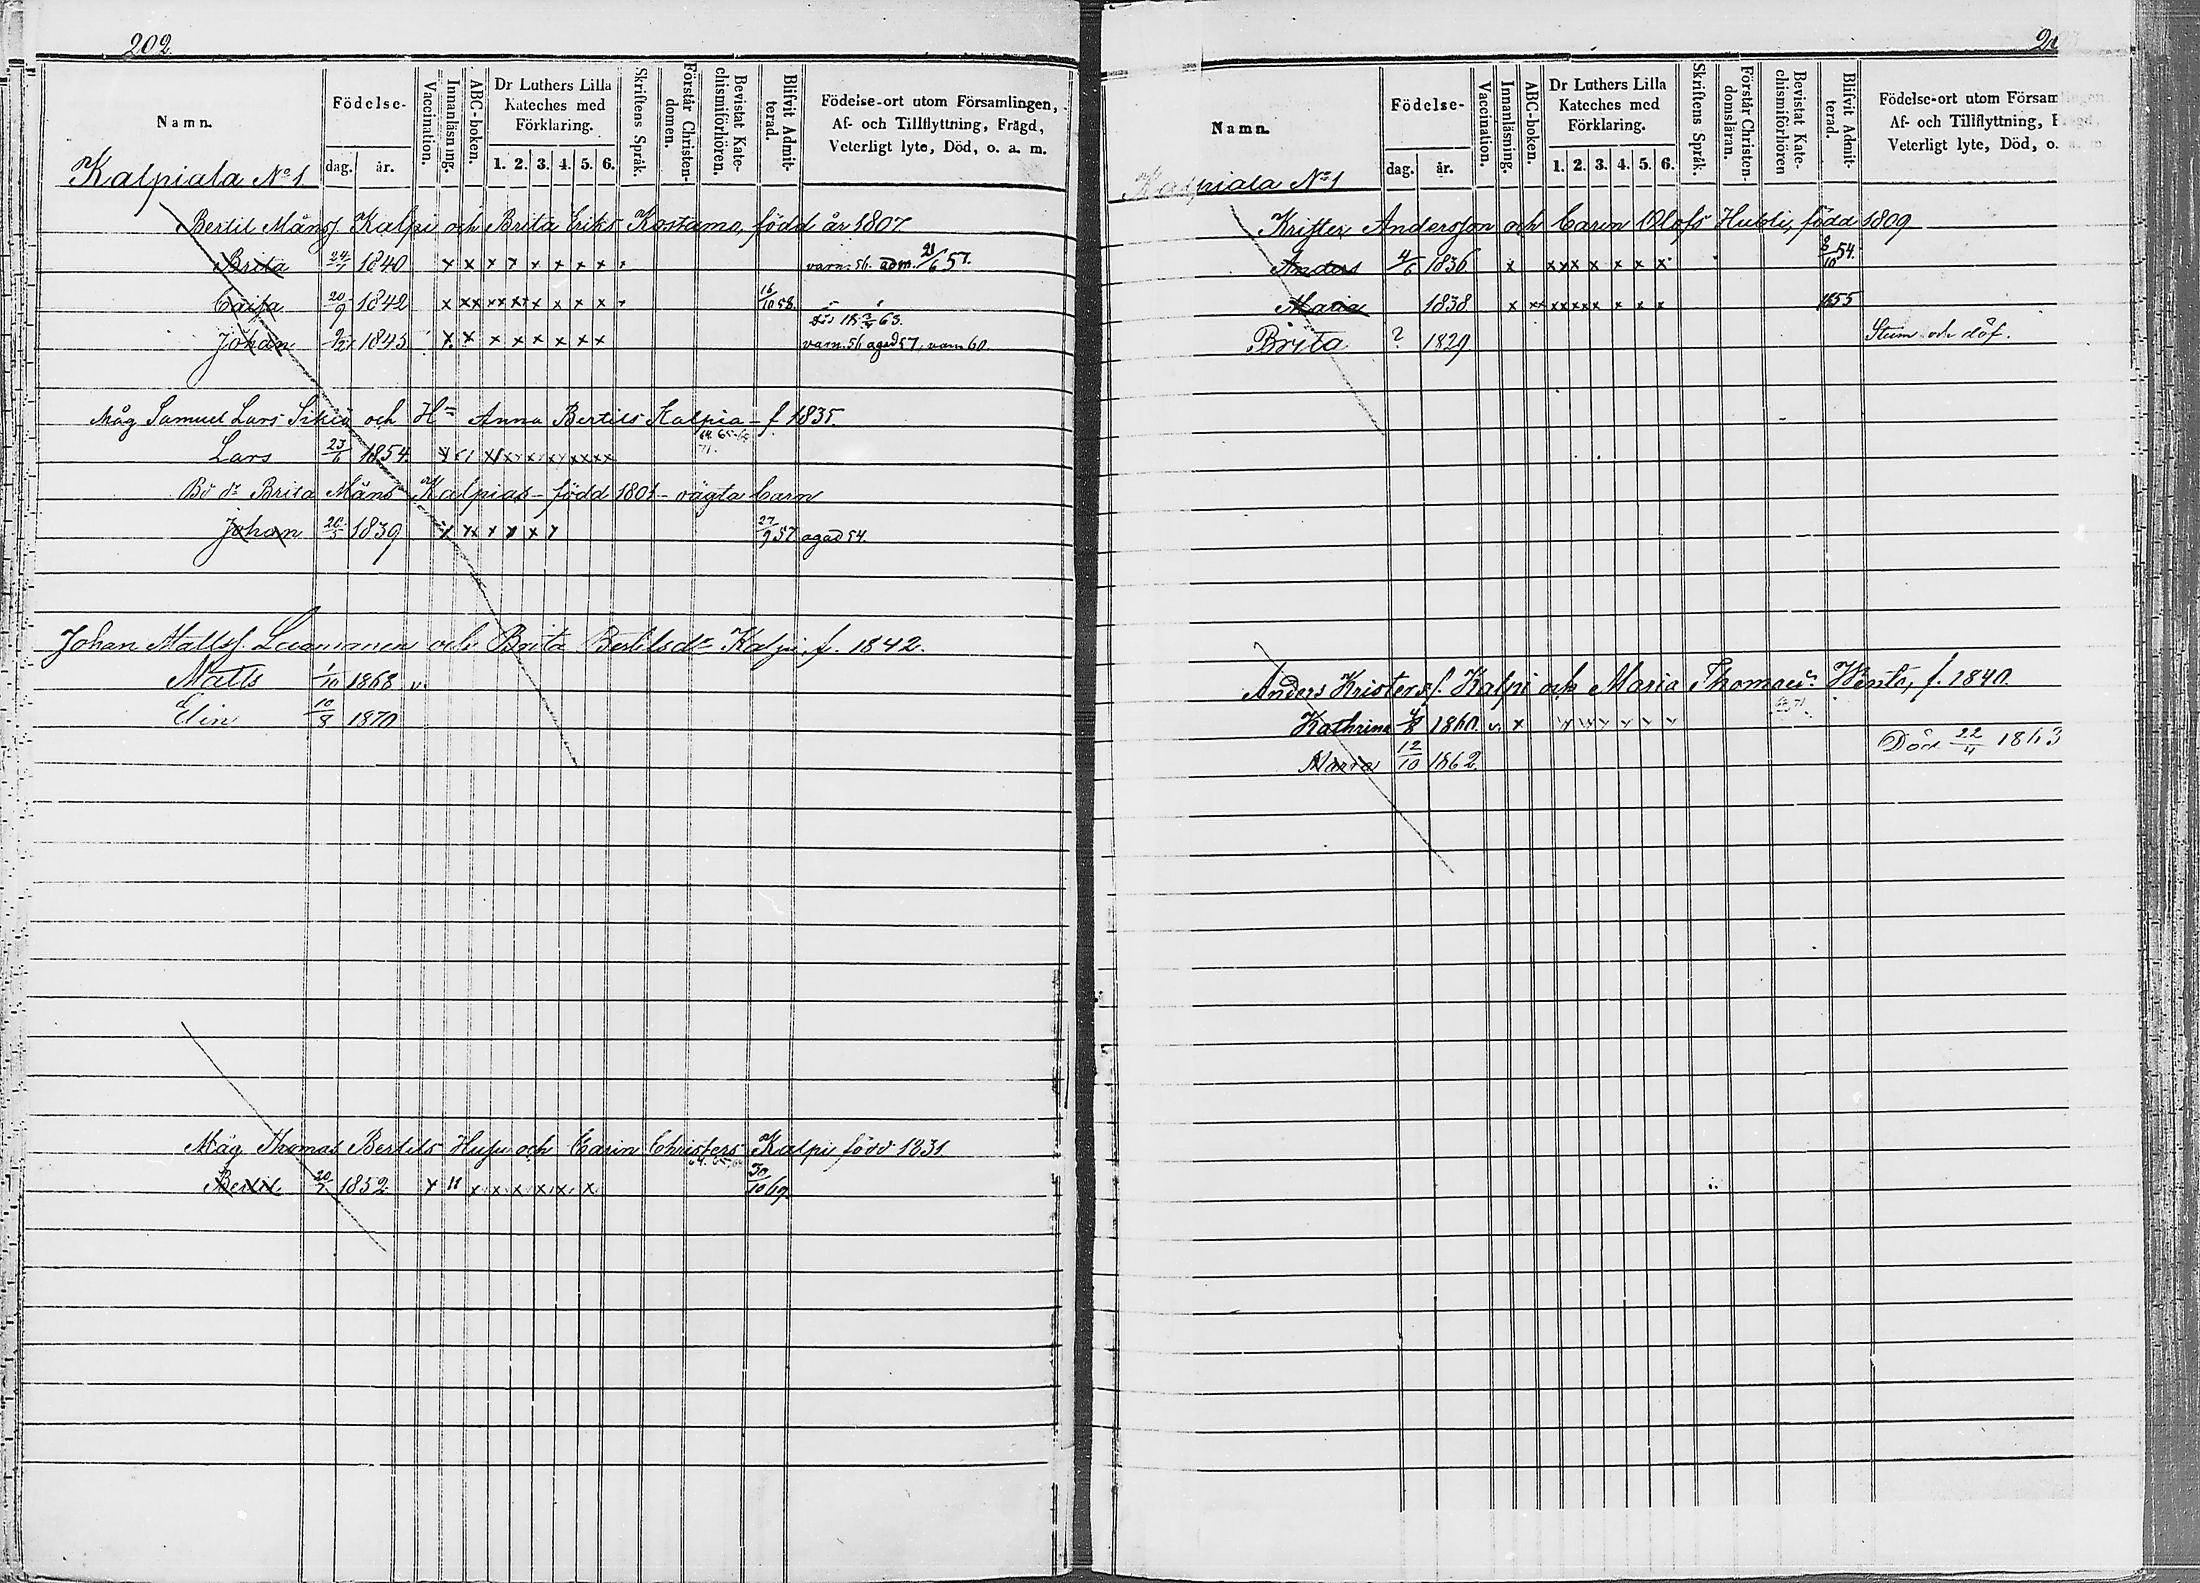 202.
Namn.
Födelse-
dag. år.
Vaccination.
Innanläsning.
ABC-boken.
Dr Luthers Lilla Kateches med Förklaring.
1. 2. 3. 4. 5. 6.
Skriftens Språk.
Förstår Christen-domen.
Bevistat Kate-chismiförhören.
Blifvit Admit-terad.
Födelse-ort utom Församlingen, Af- och Tillflyttning, Frägd, Veterligt lyte, Död, o. a. m.
Kalpiala No 1
Bertil Månss. Kalpi och Brita Eriks Kostamo, född år 1807
Brita 24/1 1840 x x x x x x x x varn. 56. adm. 21/6 57.
Caisa 20/9 1842 x xx xx xx x x x x 16/10 58.
1863.
Johan 1845 x x x x x x x x varn. 56 agad 57, varn 60.
Måg Samuel Lars Sikiö och Hu Anna Bertils Kalpia - f 1835.
64. 65
71.
Lars 23/6 1854.
Bdr Brita Måns Kalpias - född 1801 - oägta barn
Johan 20/5 1839 x xx x x x x 27/9 57 agad 54.
Johan Mattss. och Brita Bertilsdr Kalpi, f. 1842.
Matts 1/10 1868 v.
Elin 10/8 1870
Måg Thomas Bertils Husu och Carin Christers Kalpi född 1831.
Bertil 20/7 1852 x 11 x x x x x x 30/10 69.
Namn.
Födelse-
dag. år.
Vaccination.
Innanläsning.
ABC-boken.
Dr Luthers Lilla Kateches med Förklaring.
1. 2. 3. 4. 5. 6.
Skriftens Språk.
Förstår Christen-domsläran.
Bevistat Kate-chismiförhören
Blifvit Admit-terad.
Födelse-ort utom Församlingen, Af- och Tillflyttning, Frägd, Veterligt lyte, Död, o. a. m.
Kalpiala No 1
Krister Andersson och Carin Olofs Hubli, född 1809
Anders 4/6 1836 x x x x x x x x 8/10 54.
Maria 1838 x xx xx xx x x x x 1855
Brita ? 1829 Stum och döf.
Anders Kristerss. Kalpi och Maria Thomasdr Wento, f. 1840.
Kathrina 4/8 1860. v. x
Maria 12/10 1862 Död 22/4 1863